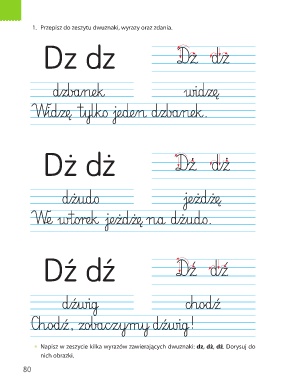 1. Przepisz do zeszytu dwuznaki, wyrazy oraz zdania.
Dz dz Dz dz
dzbanek widzę
Widzę tylko jeden dzbanek.
Dż dż Dż dż
dżudo jeżdżę
We wtorek jeżdżę na dżudo.
Dź dź Dź dź
dźwig chodź
Chodź, zobaczymy dźwig!
• Napisz w zeszycie kilka wyrazów zawierających dwuznaki: dz, dź, dż. Dorysuj do
nich obrazki.
80